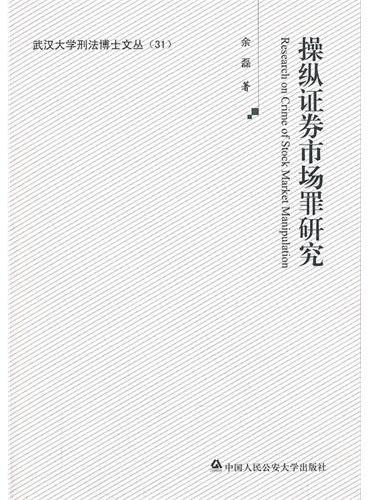 武汉大学刑法博士文丛（31）
余磊 著
操纵证券市场罪研究
Research on Crime of Stock Market Manipulation
中国人民公安大学出版社